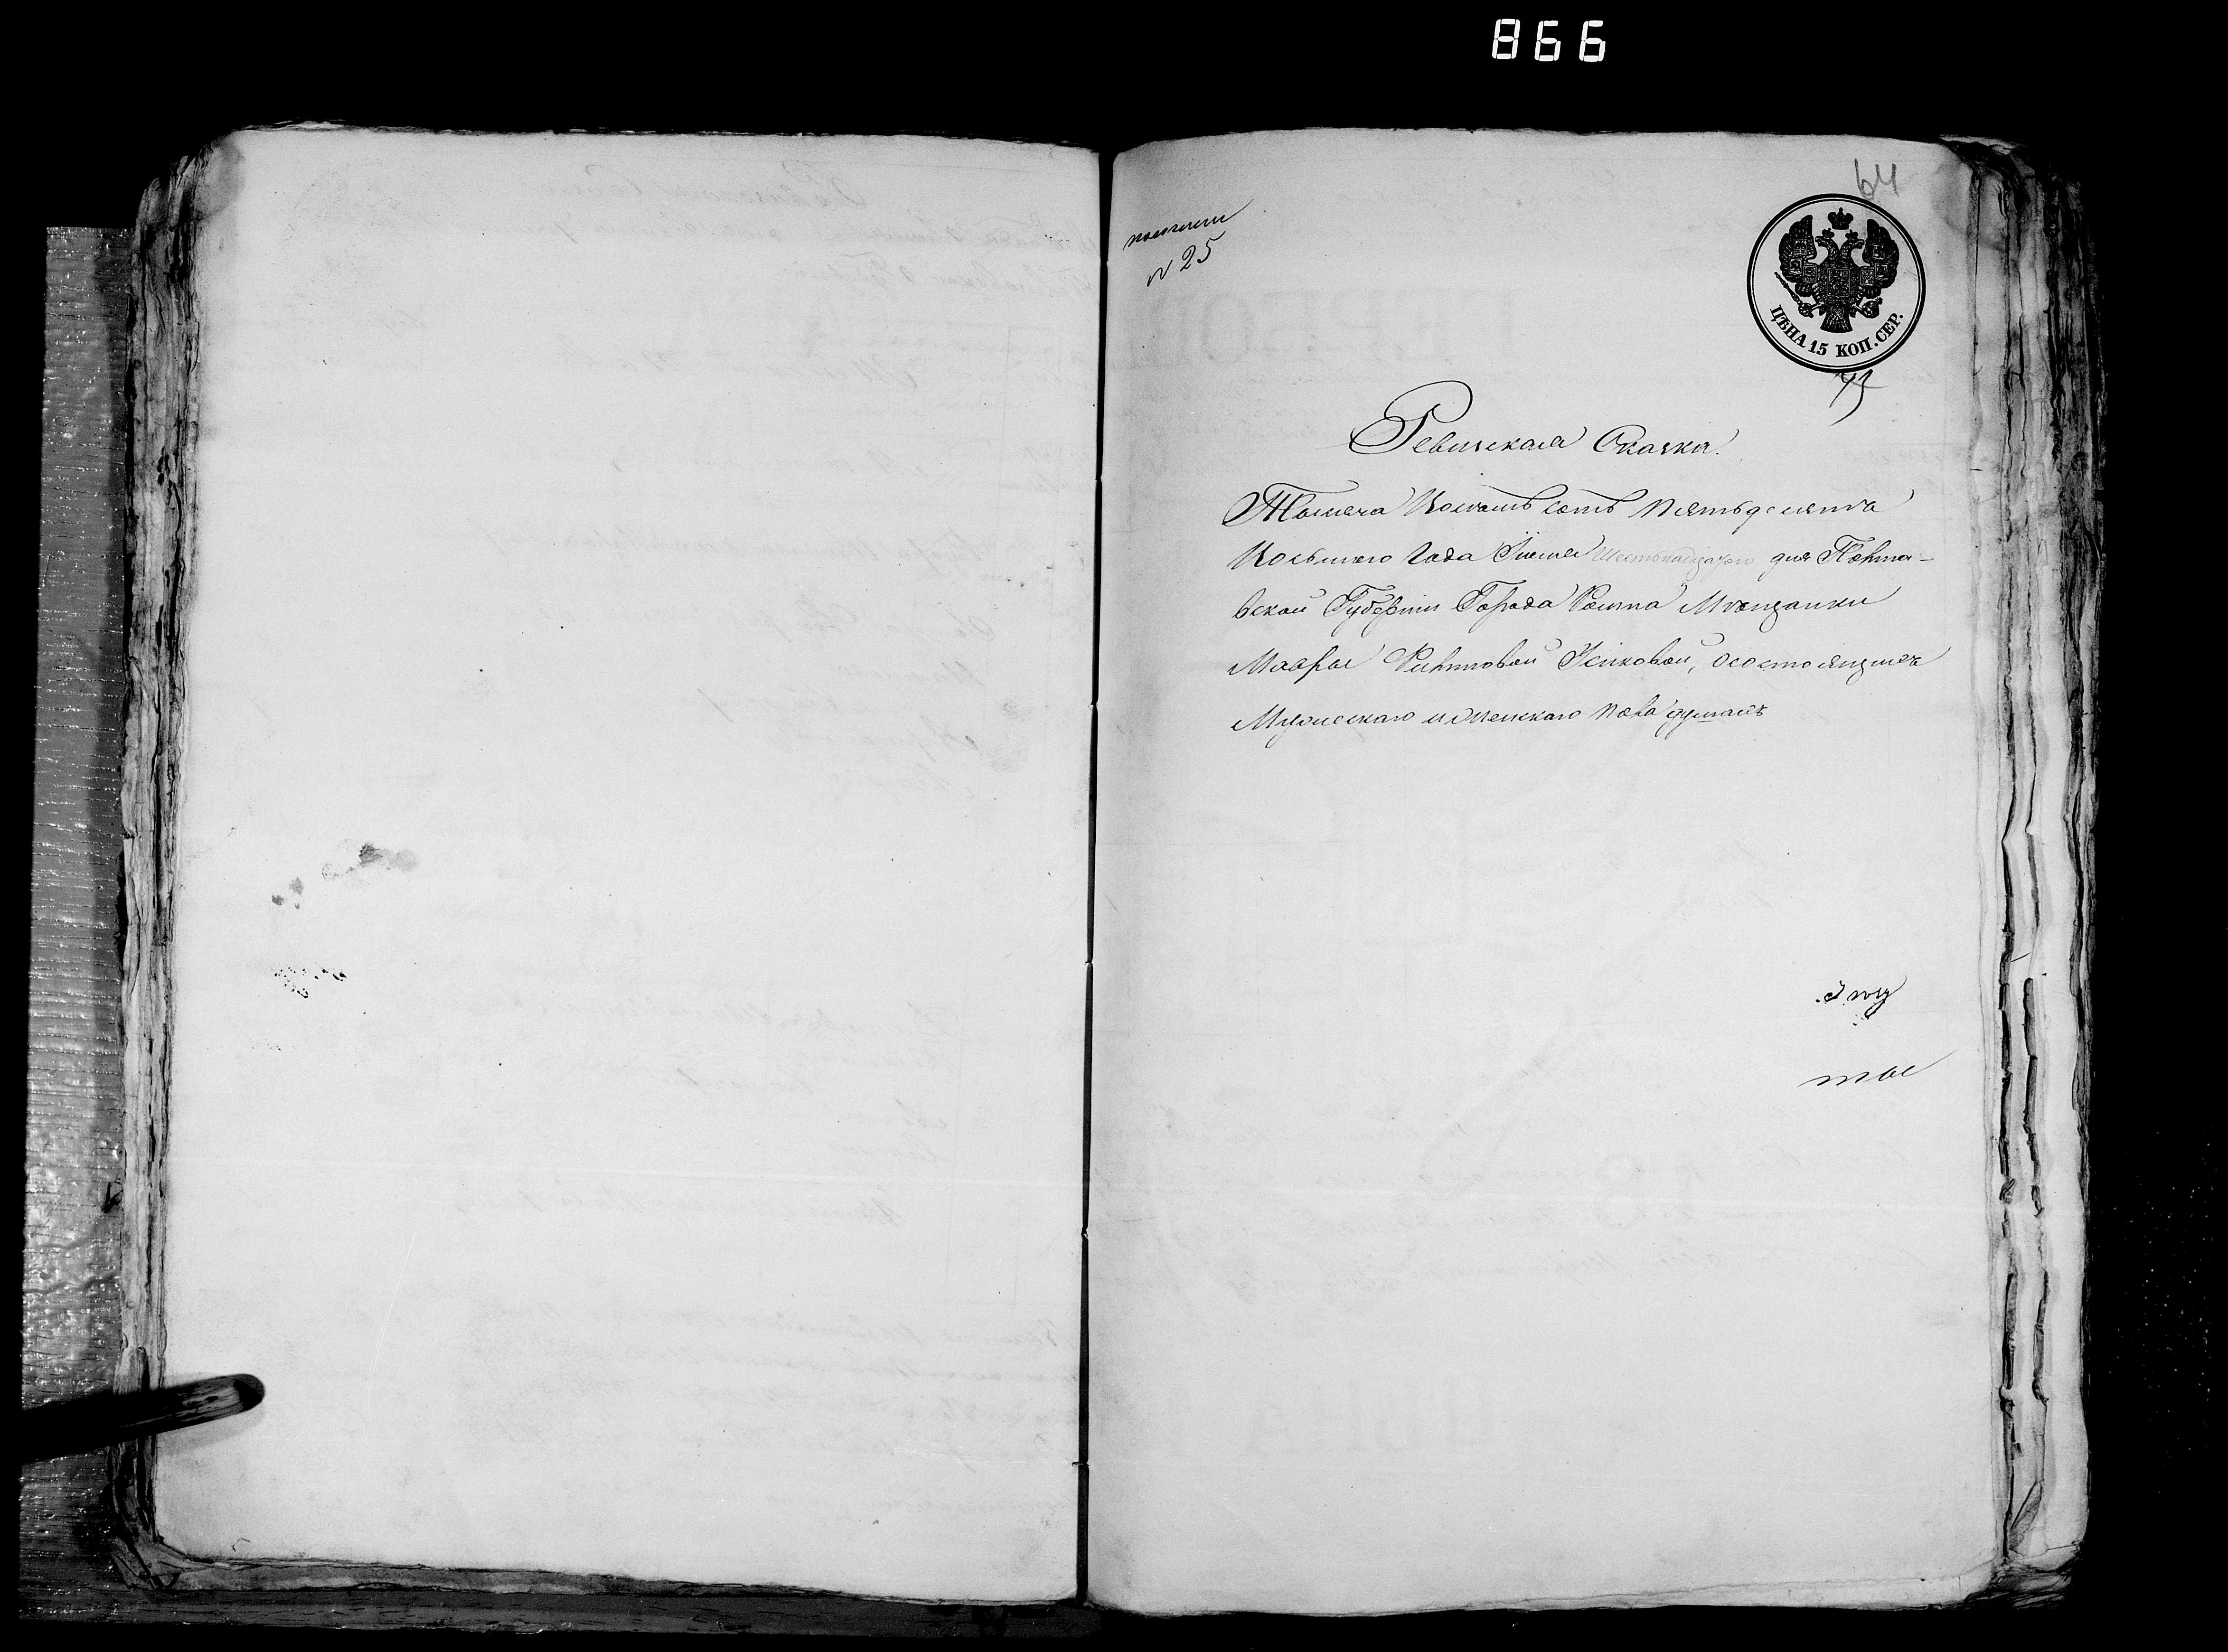 866
64
№ 25
ЦѢНА 15 КОП. СЕР.
Ревизская Сказка.
Тысяча Восемь сотъ пятьдесятъ
Восьмого Года Іюня Шестьнадцатого дня Полта-
вской Губерніи Города Ромна Мѣщанки
Мавры Усиковой, о состоящихъ
Мужескаго и женскаго пола душахъ